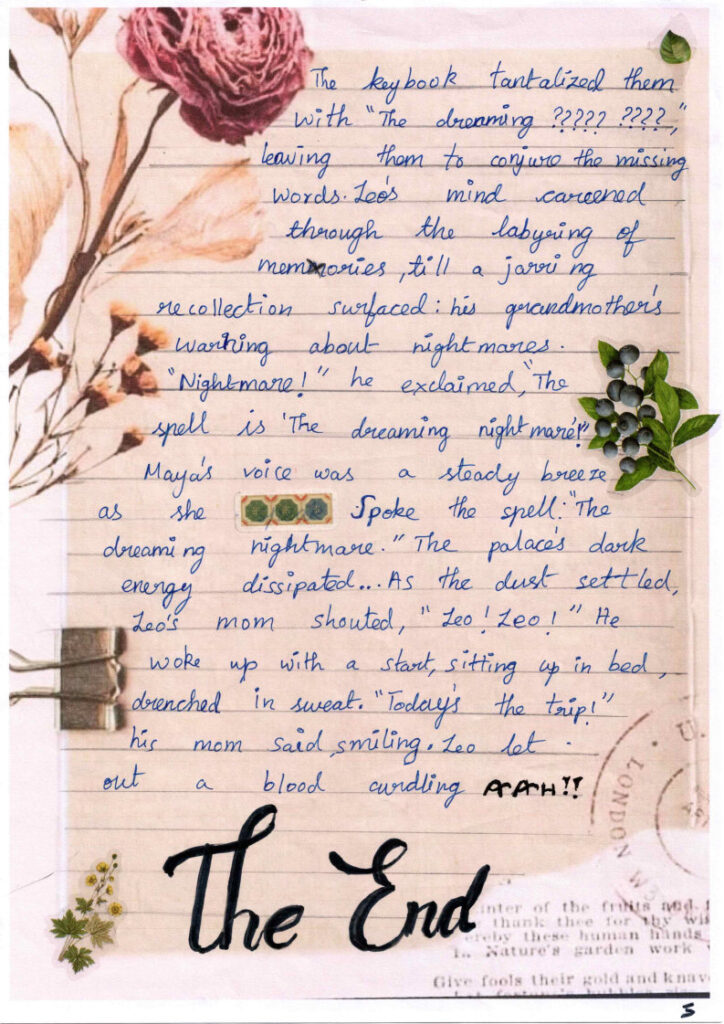 The keybook tantalized them
with "The dreaming ????? ????,"
leaving them to conjure the missing
words. Leo's mind careened
through the labyring of
memories, till a jarring
recollection surfaced: his grandmother's
warning about nightmares.
"Nightmare!" he exclaimed, "The
spell is 'The dreaming nightmare'!"
Maya's voice was a steady breeze
as she Spoke the spell: "The
dreaming nightmare." The palace's dark
energy dissipated... As the dust settled,
Leo's mom shouted, "Leo! Leo!" He
woke up with a start, sitting up in bed,
drenched in sweat. "Today's the trip!"
his mom said, smiling. Leo let
out a blood curdling AAAH!!
LONDON W
The End
inter of the fruits and
thank thee for thy wis
ereby these human hands
In Nature's garden work
Give fools their gold and knav
5